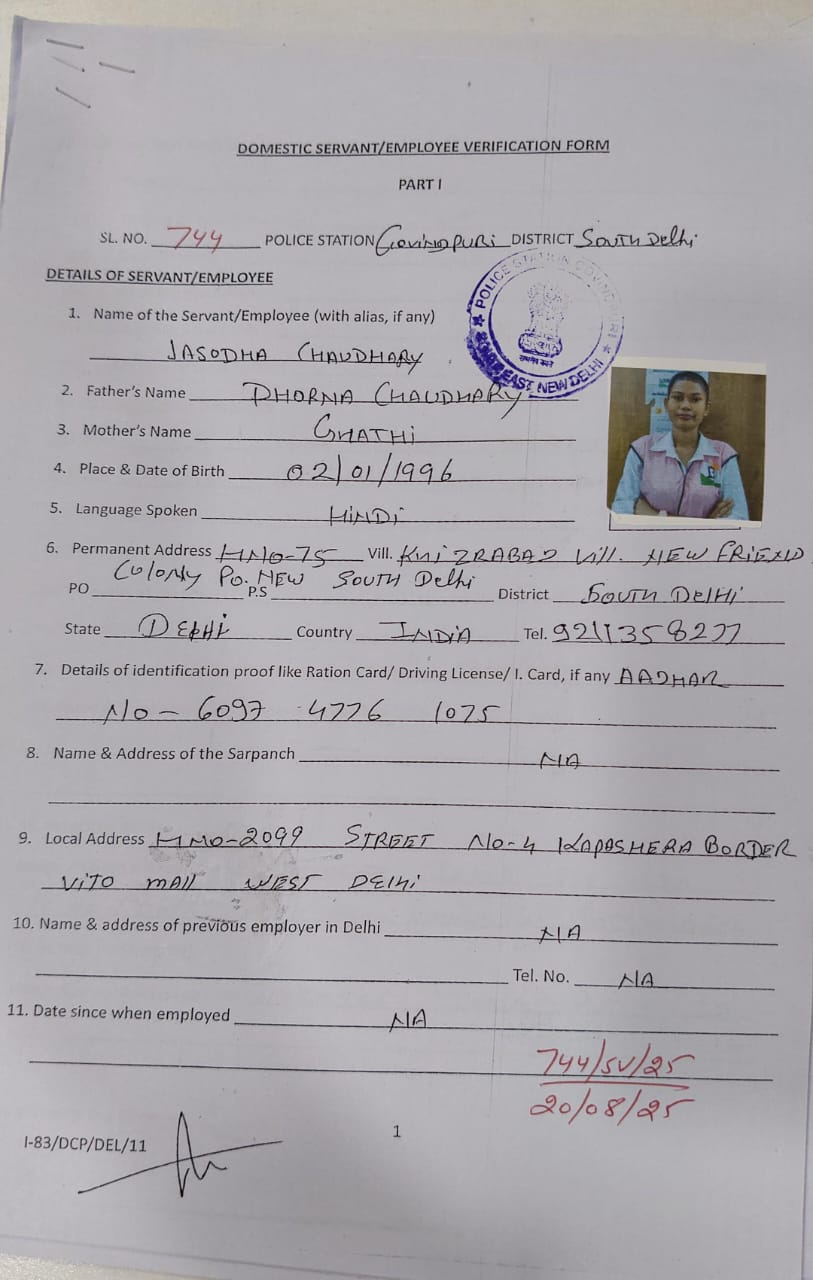 DOMESTIC SERVANT/EMPLOYEE VERIFICATION FORM
PART I
SL. NO. 744 POLICE STATION GOVINDPURI DISTRICT SOUTH DELHI
POLICE STATION GOVINDPURI
SOUTH EAST NEW DELHI
DETAILS OF SERVANT/EMPLOYEE
1. Name of the Servant/Employee (with alias, if any)
JASODHA CHAUDHARY
2. Father's Name DHORNA CHAUDHARY
3. Mother's Name GHATHI
4. Place & Date of Birth 02/01/1996
5. Language Spoken HINDI
6. Permanent Address HNO-75 Vill. KHIZRABAD Vill. NEW FRIEND
Colony Po. NEW SOUTH Delhi
PO P.S District SOUTH DELHI
State DELHI Country INDIA Tel. 9211358277
7. Details of identification proof like Ration Card/ Driving License/ I. Card, if any AADHAR
No - 6097 4776 1075
8. Name & Address of the Sarpanch NA
9. Local Address HNO-2099 STREET No-4 KAPASHERA BORDER
VITO mall WEST DELHI
10. Name & address of previous employer in Delhi NA
Tel. No. NA
11. Date since when employed NA
744/SV/25
20/08/25
I-83/DCP/DEL/11
1